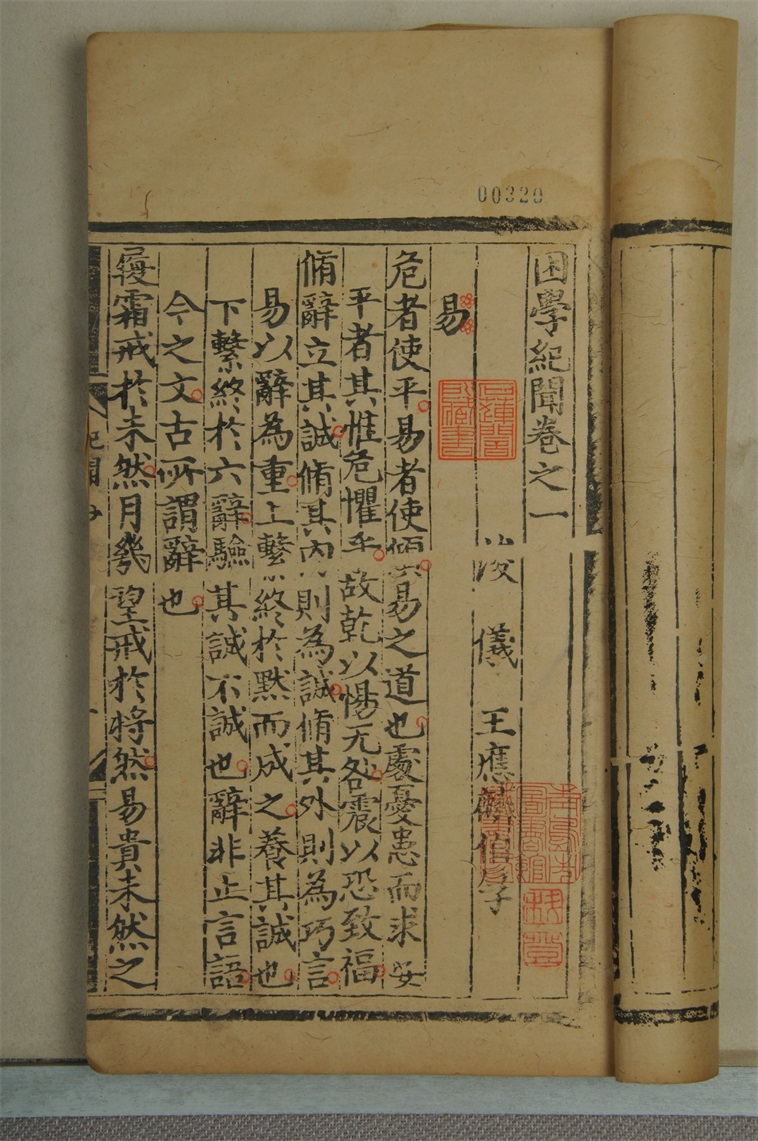 00320
困學紀聞卷之一
浚儀王應麟伯厚
易
危者使平易者使傾易之道也處憂患而求安
平者其惟危懼乎故乾以惕无咎震以恐致福
脩辭立其誠脩其內則為誠脩其外則為巧言
易以辭為重上繫終於默而成之養其誠也
下繫終於六辭驗其誠不誠也辭非止言語
今之文古所謂辭也
履霜戒於未然月幾望戒於將然易貴未然之